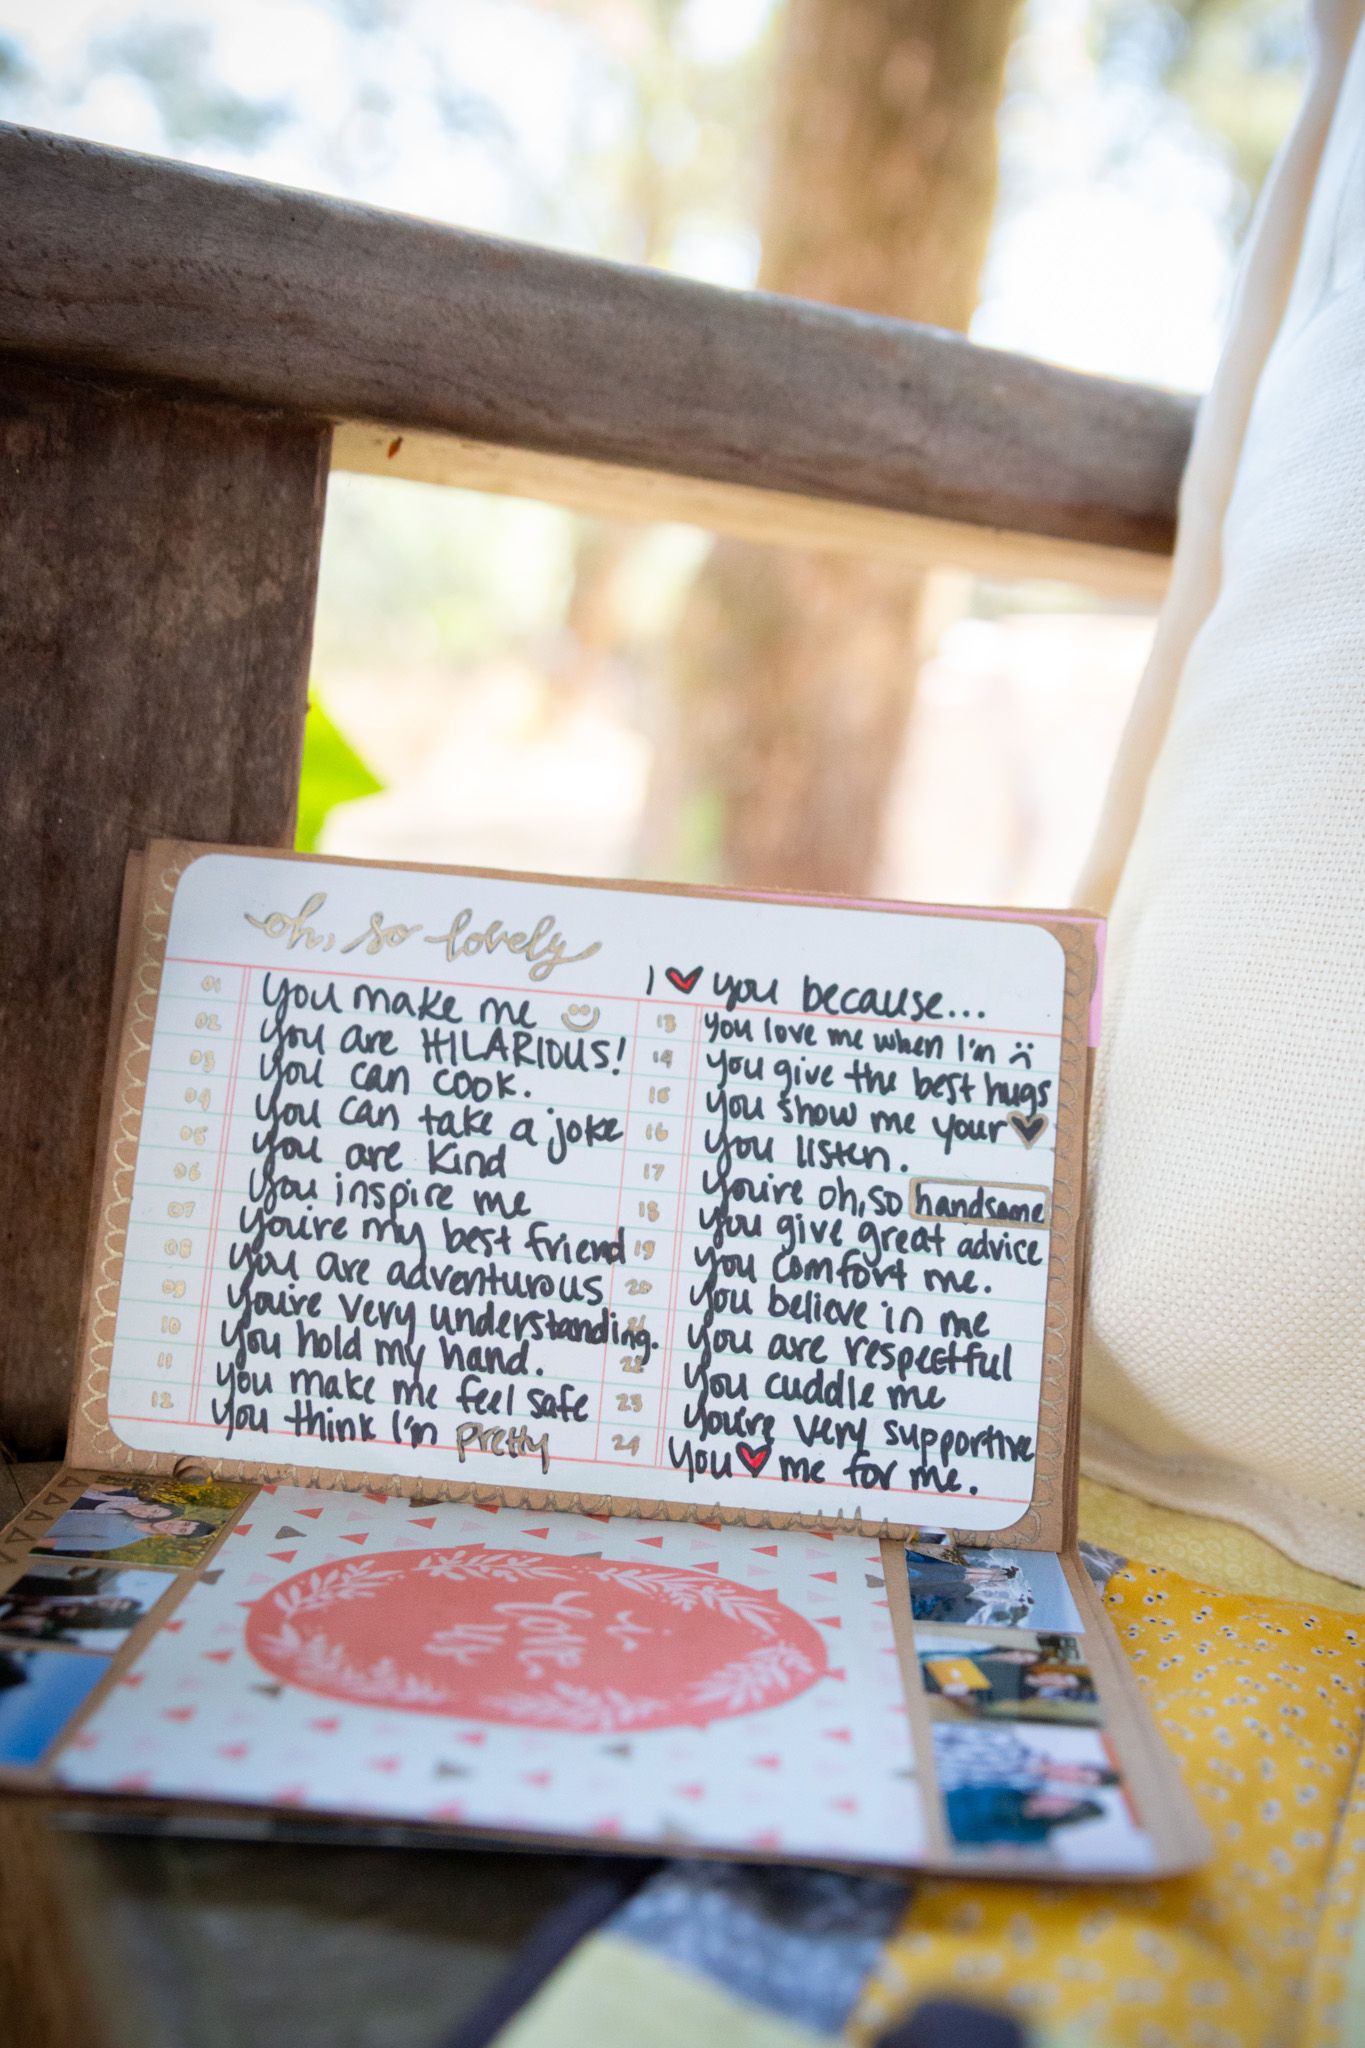 oh, so lovely
I ❤ you because...
01 You make me ☺
02 You are HILARIOUS!
03 You can cook.
04 You can take a joke
05 You are kind
06 You inspire me
07 You're my best friend
08 You are adventurous
09 You're very understanding.
10 You hold my hand.
11 You make me feel safe
12 You think I'm pretty
13 You love me when I'm ☹
14 You give the best hugs
15 You show me your ♥
16 You listen.
17 You're oh, so handsome
18 You give great advice
19 You comfort me.
20 You believe in me
21 You are respectful
22 You cuddle me
23 You're very supportive
24 You ❤ me for me.
i
love
us